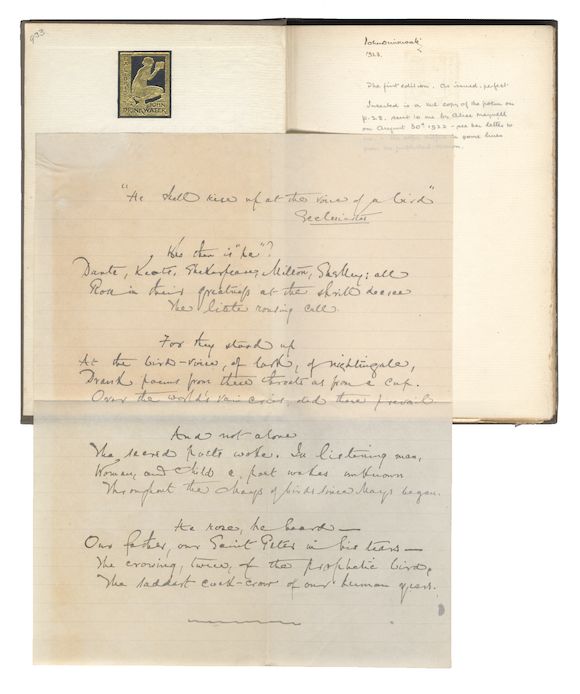 933
JOHN
DRINKWATER
John Drinkwater
1923.
The first edition. As issued. perfect.
Inserted is a MS. copy of the poem on
p. 28. sent to me by Alice Meynell
on August 30th 1922 – see her letter to
in some lines
from the published version.
"He shall rise up at the voice of a bird"
Ecclesiastes
Who then is "he"?
Dante, Keats, Shakespeare, Milton, Shelley; all
Rose in their greatness at the shrill decree
The little rousing call.
For they stood up
At the bird-voice, of lark, of nightingale,
Drank poems from these throats as from a cup.
Over the world's vain cries, did these prevail.
And not alone
The sacred poets woke. In listening man,
Woman, and Child a poet wakes unknown
Throughout the Mays of birds since Mays began.
He rose, he heard—
Our father, our Saint Peter in his tears—
The crowing, twice, of the prophetic bird,
The saddest cock-crow of our human years.